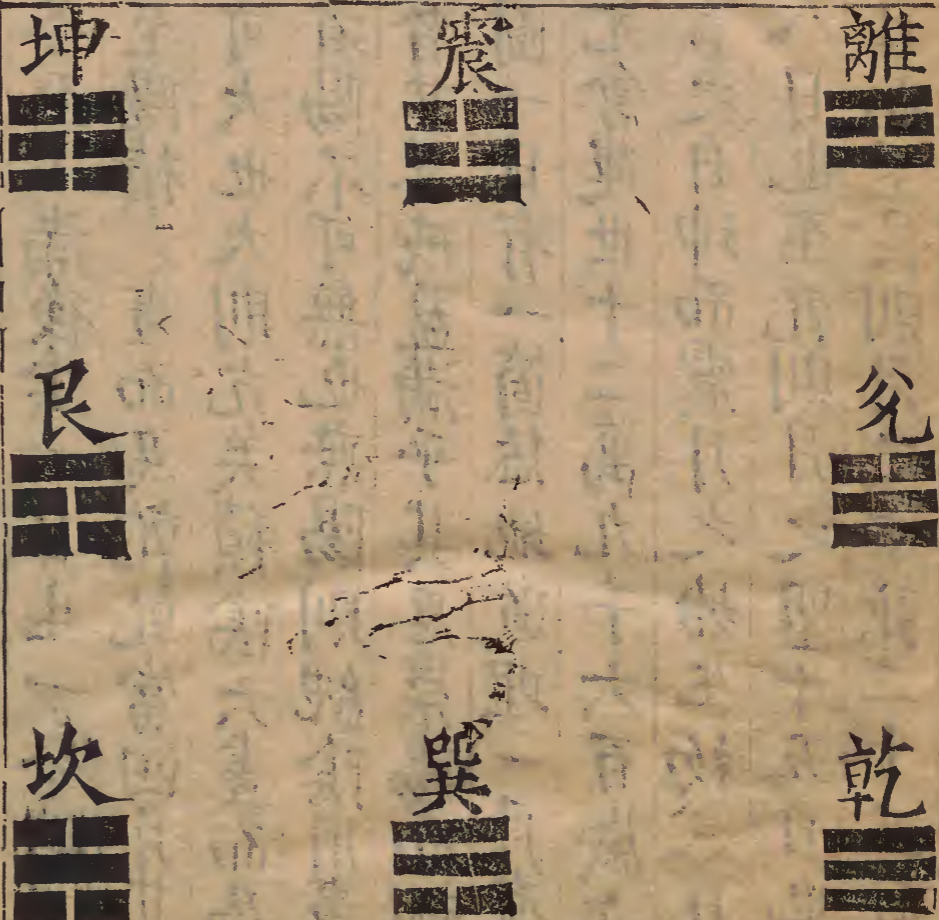 離
兊
乾
震
巽
坤
艮
坎